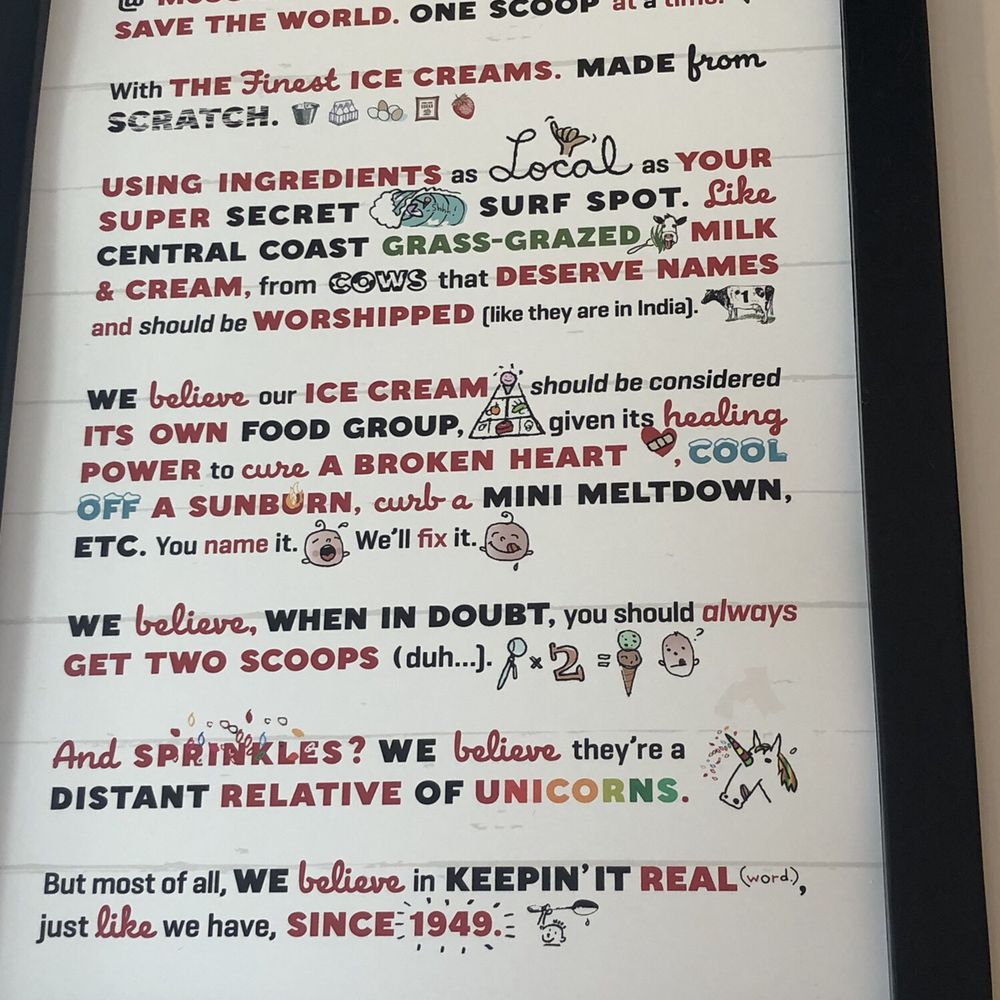 SAVE THE WORLD. ONE SCOOP at a time.
With THE Finest ICE CREAMS. MADE from
SCRATCH.
USING INGREDIENTS as Local as YOUR
SUPER SECRET Shhh! SURF SPOT. Like
CENTRAL COAST GRASS-GRAZED MILK
& CREAM, from COWS that DESERVE NAMES
and should be WORSHIPPED (like they are in India). #1
WE believe our ICE CREAM should be considered
ITS OWN FOOD GROUP, given its healing
POWER to cure A BROKEN HEART, COOL
OFF A SUNBURN, curb a MINI MELTDOWN,
ETC. You name it. We'll fix it.
WE believe, WHEN IN DOUBT, you should always
GET TWO SCOOPS (duh...). x 2 = ?
And SPRINKLES? WE believe they're a
DISTANT RELATIVE OF UNICORNS.
But most of all, WE believe in KEEPIN' IT REAL (word.),
just like we have, SINCE 1949.